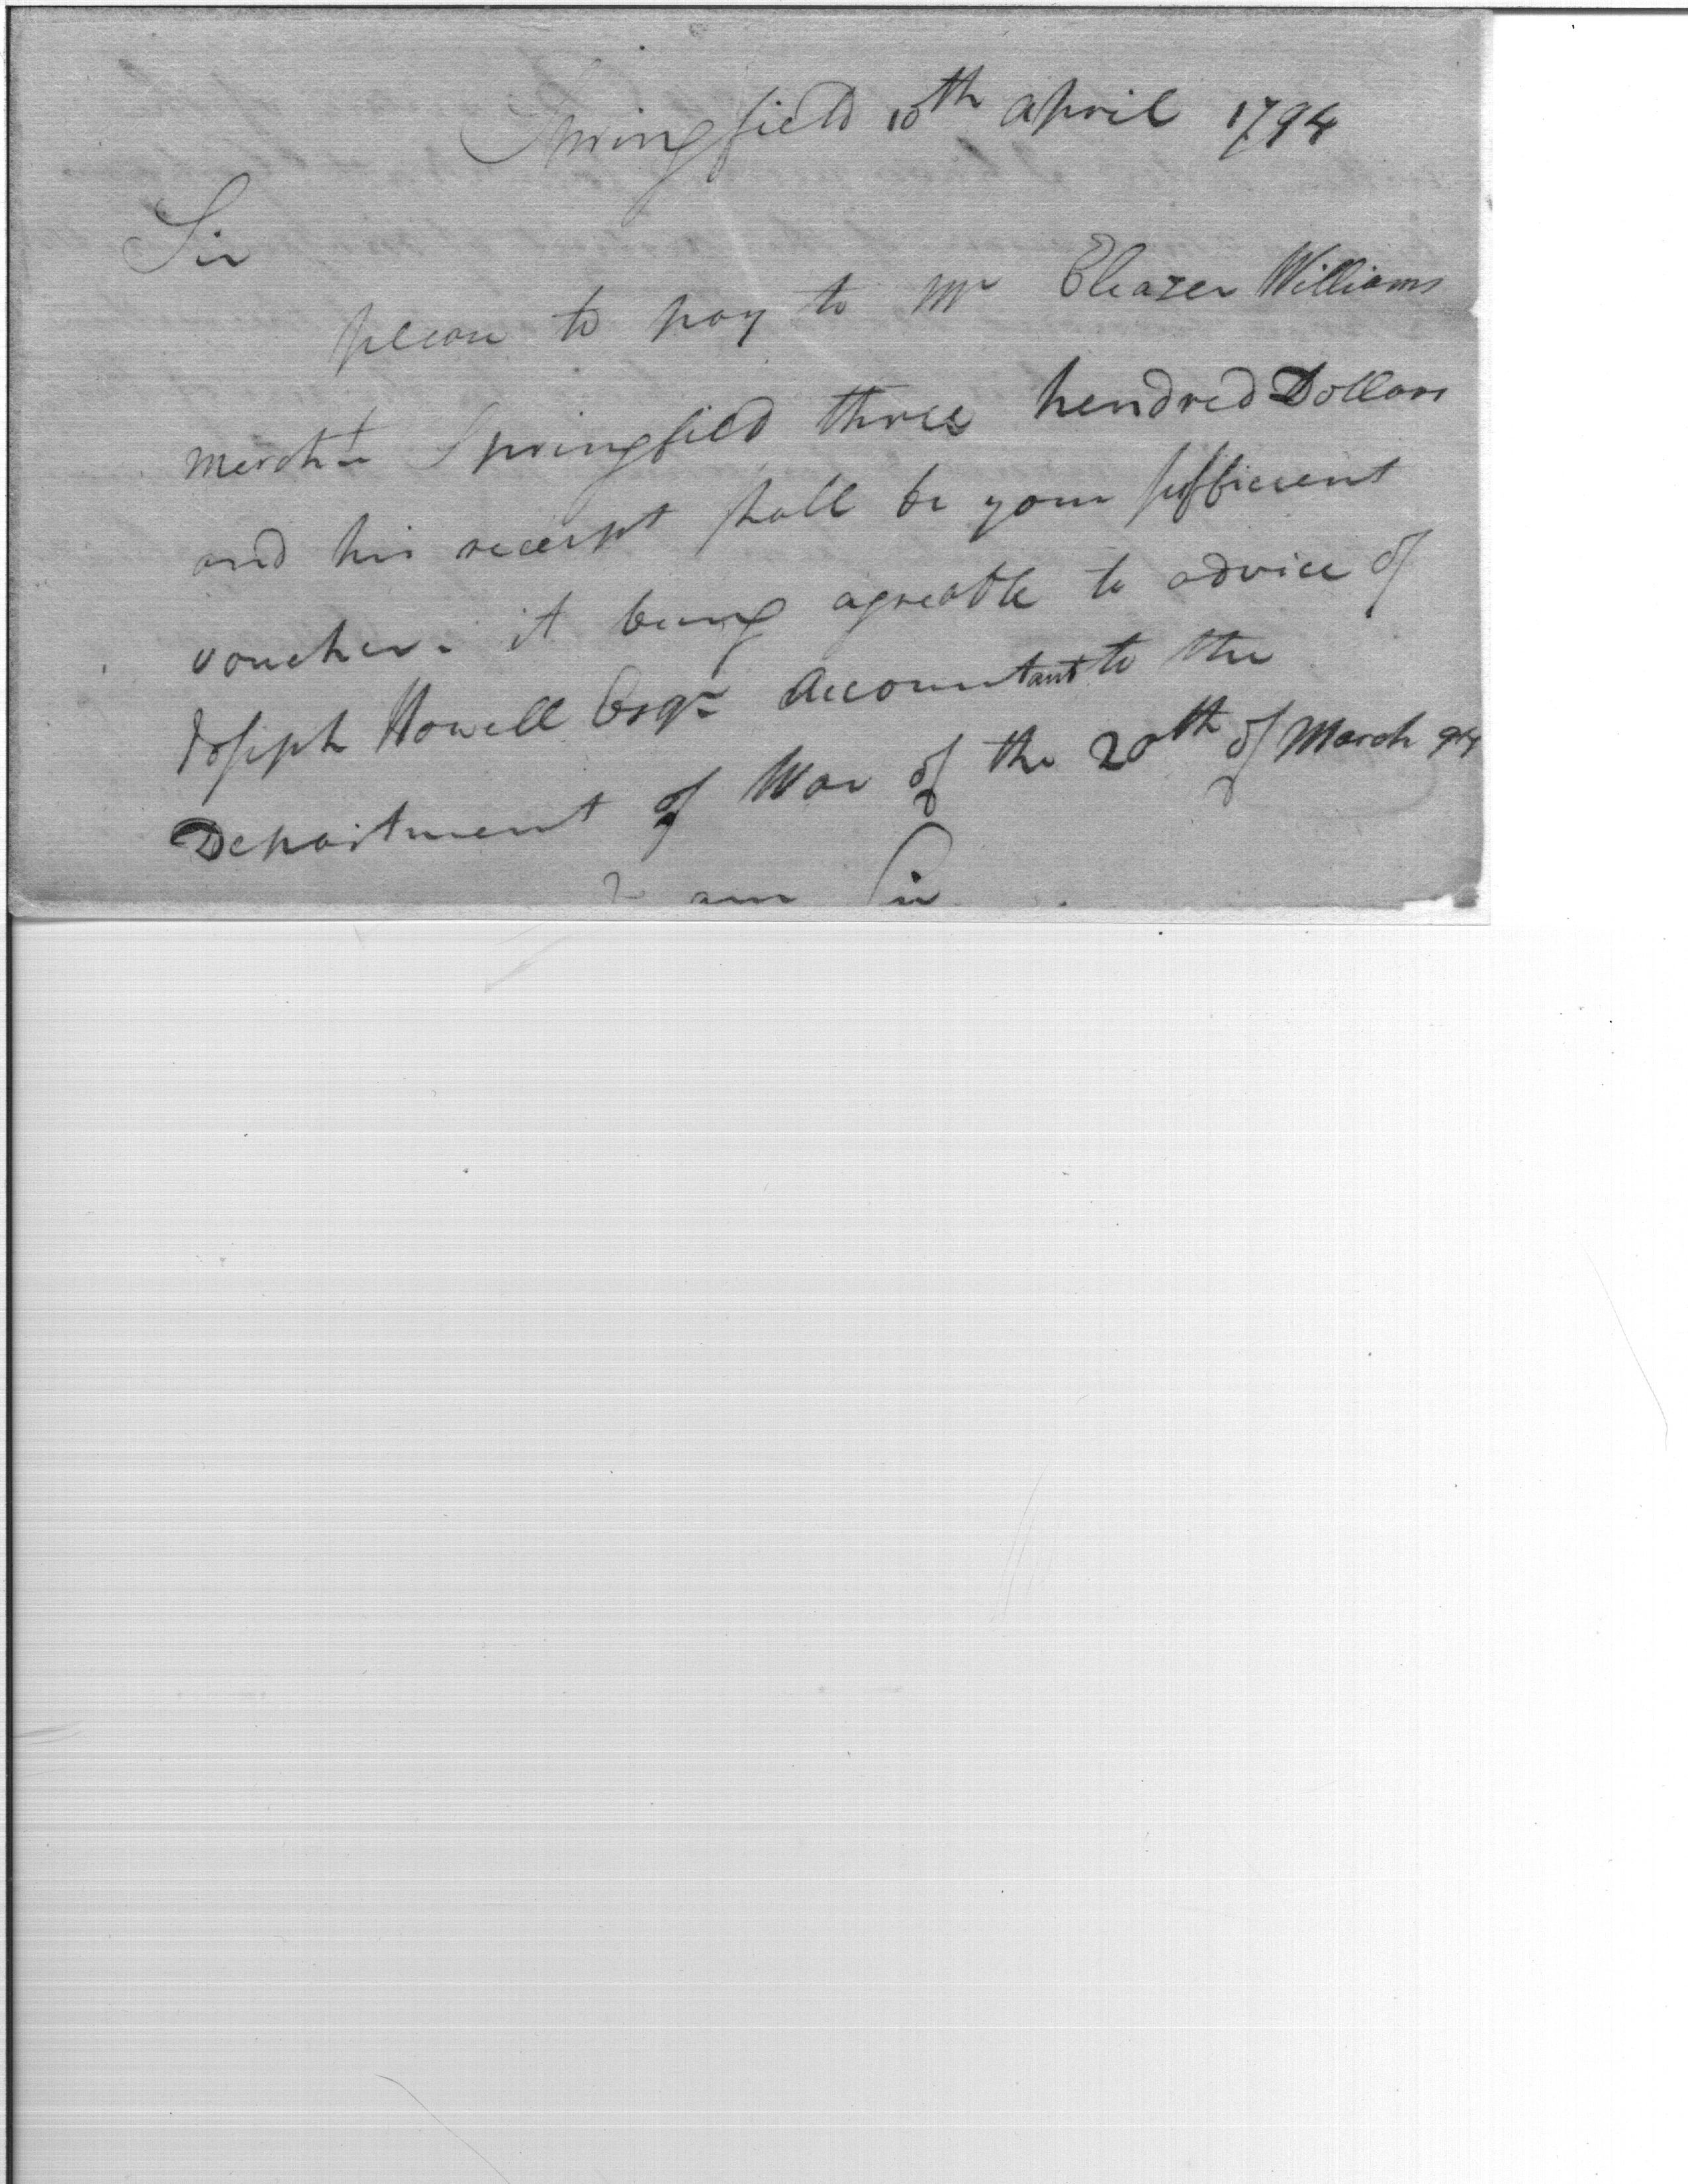 Springfield 10th April 1794
Sir
please to pay to Mr Eleazer Williams
mercht Springfield three hendred Dollars
and his receipt shall be your sufficient
voucher. it being agreable to advice of
Joseph Howell Esqr Accountant to the
Department of War of the 20th of March 94
I am Sir